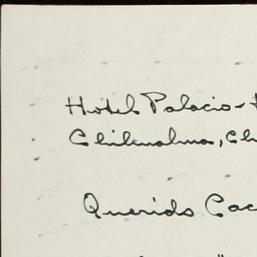 Hotel Palacio-
Chihuahua, Ch
Querido Cac